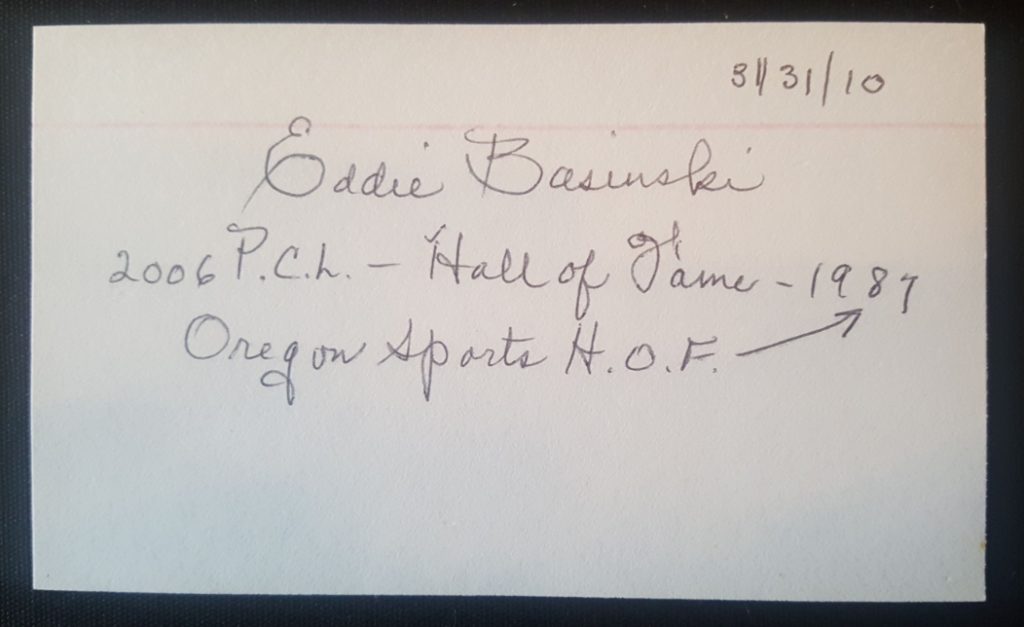 3/31/10
Eddie Basinski
2006 P.C.L. - Hall of Fame - 1987
Oregon Sports H.O.F.